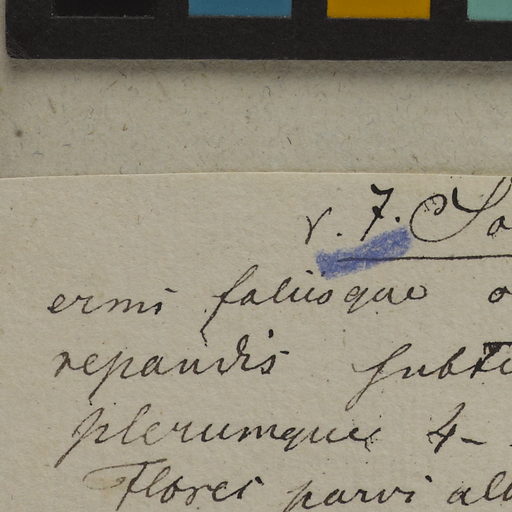 v. 7. So
ermi foliisque o
repandis subt
plerumque 4-
Flores parvi alb